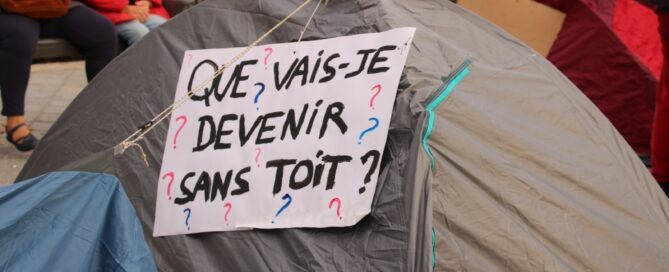 QUE VAIS-JE
DEVENIR
SANS TOIT ?